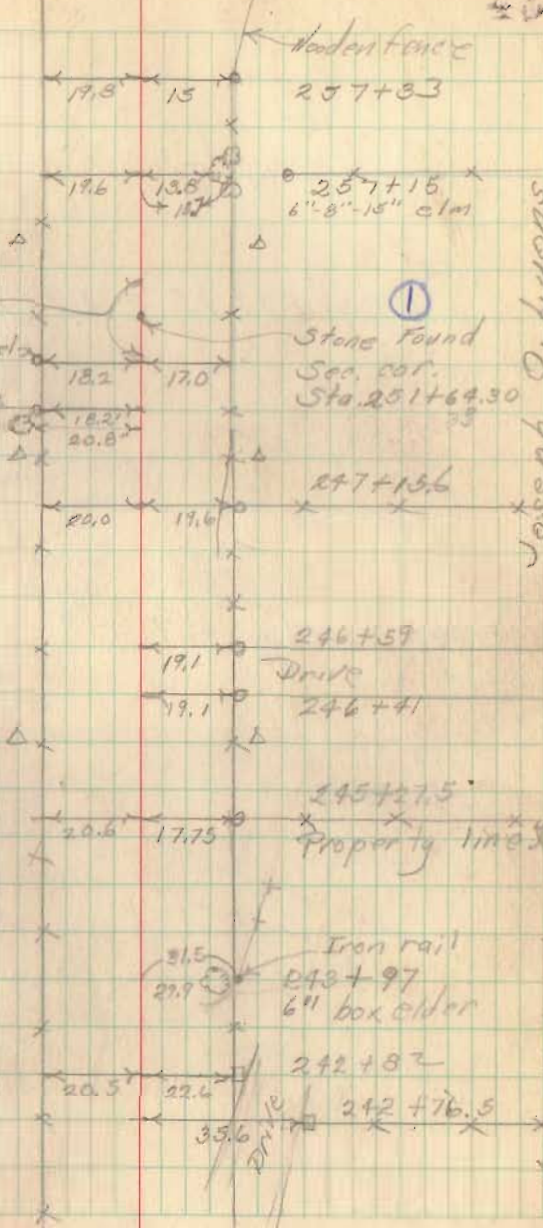 Wooden fence
19.8 15 257+33
19.6 13.8 257+15
6"-8"-15" elm
1
Stone Found
18.2 17.0 Sec. cor.
Sta. 251+64.30
18.2
20.8
247+13.6
20.0 19.6
246+59
19.1 Drive
19.1 246+41
245+27.5
20.6 17.75 Property line
31.5 Iron rail
29.9 243+97
6" box elder
242+82
20.5 22.6
242+76.5
35.6 Drive